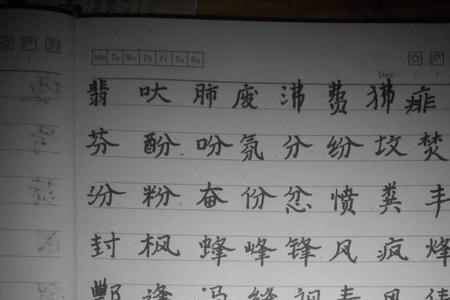 Mo Tu We Th Fr Sa Su
Date / /
翡 吠 肺 废 沸 费 狒 痱
芬 酚 吩 氛 分 纷 坟 焚
汾 粉 奋 份 忿 愤 粪 丰
封 枫 蜂 峰 锋 风 疯 烽
逢 冯 缝 讽 奉 凤